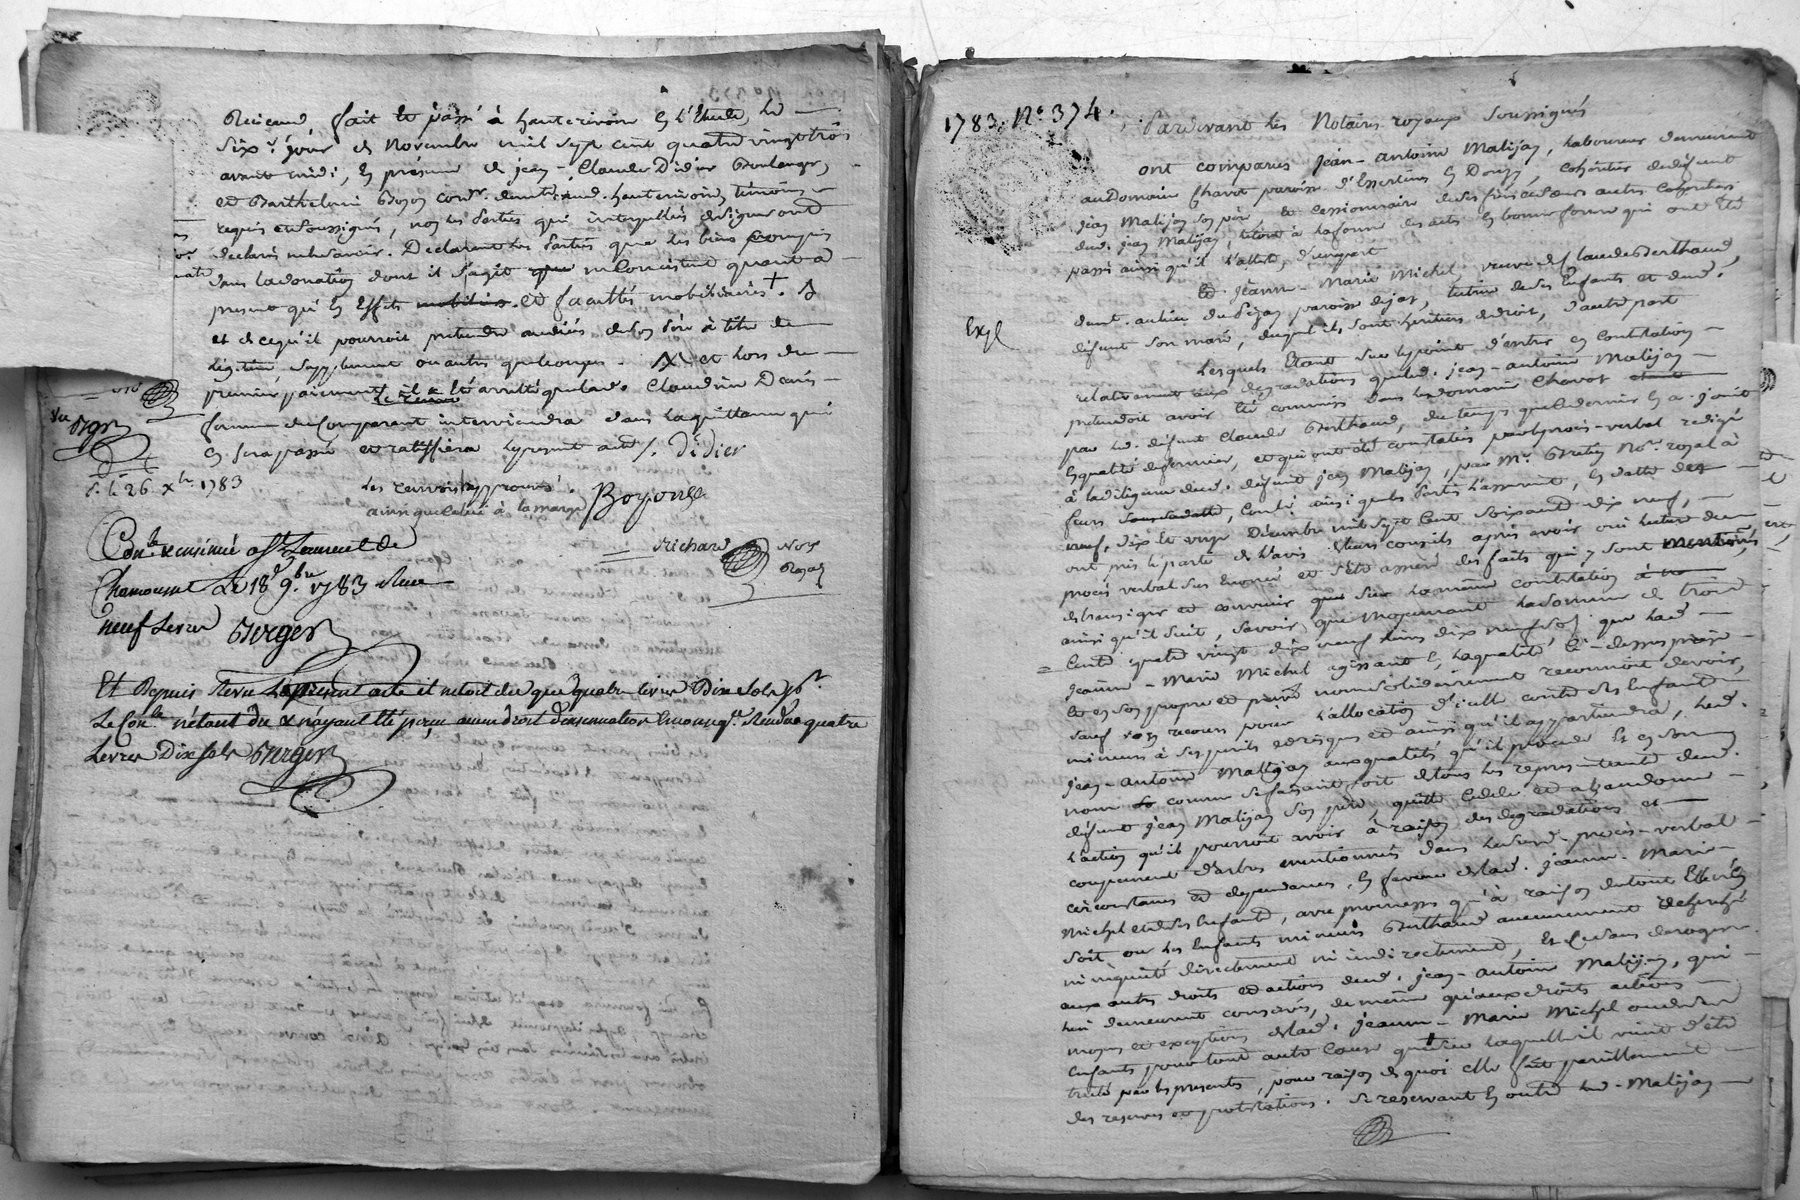 fait et passé à hauterivoire en l'Etude, le
Six.e jour de Novembre mil sept cent quatre vingt trois
avant midi, en présence de jean-Claude Didier Boulanger,
et Barthelemi Boyon Cord.r demt. aud. hauterivoire, témoins
requis et soussignés, non les Parties qui interpellées de signer ont
déclaré ne le savoir. Declarent les Parties que les biens compris
dans la donation dont il s'agit que ne Consistent quant à
present qu'en Effets mobiliers. et facultés mobiliaires +. A
et de ce qu'il pourroit prétendre audiés de son Père à titre de
légitime supplement ou autres quelconques. X et lors du
premier payement il a été arrêté que lad. Claudine Denis
femme du Comparant interviendra dans la quittance qui
en sera passée et ratiffiera le present acte /. Didier
Les renvois approuvés.
ainsi que celui à la marge Boyonge
S. le 26. xbre. 1783
Con.lé & insinué a St. Laurent de
Chamousset Le 18 9.bre 1783 Reçu
neuf Livres Berger
Richard Not.
Royal
Et Depuis Revu Le present acte il n'etoit du que quatre livres Dix sols p.r
Le Con.le n'etant du & n'ayant été perçu aucun droit d'insinuation En conseq.ce Rendu quatre
Livres Dix sols Berger
1783. N.o 374.
Pardevant les Notaires royaux soussignés
ont comparus Jean-Antoine Matijas, laboureur demeurant
au Domaine Chavot paroisse d'Essertines en Donzy, cohéritier de defunt
Jean Matijas son père, et cessionnaire de ses freres et sœurs autres Cohéritiers
dud. jean Matijas, le tout à la forme des actes en bonne forme qui ont été
passés ainsi qu'il l'atteste, d'une part
Et Jeanne-Marie Michel veuve de Claude Berthaud,
demt. au lieu du paroisse de jas, tutrice de ses Enfants et dud.
défunt son mari, duquel ils sont heritiers de droit, d'autre part
Expé
Lesquels Etant sur le point d'entrer en Contestation
relativement aux dégradations que led. jean-antoine Matijas
prétendoit avoir été commises dans led. domaine Chavot
par led. défunt Claude Berthaud, du temps que ce dernier en a jouit
en qualité de fermier, et qui ont été constatées par le procès-verbal redigé
à la diligence dud. défunt jean Matijas, par M.e Bretin No.re royal à
feurs sous sa datte, Contrôlé ainsi que les Parties l'assurent, en datte des
neuf, dix Et onze Décembre mil sept Cent soixante dix neuf,
ont pris le parti de l'avis de leurs conseils après avoir oui lecture dud.
procès verbal sus énoncé et s'être assurés des faits qui y sont mentionnés,
de transiger et convenir que sur la même contestation
ainsi qu'il suit, savoir, que moyennant la somme de trois
Cents quatre vingt dix neuf livres dix neuf sols que lad.
Jeanne-Marie Michel agissant en la qualité ci-dessus prise
et en son propre et privé nom solidairement reconnoit devoir,
sauf son recours pour l'allocation d'icelle contre ses Enfants
mineurs à ses perils et risques et ainsi qu'il appartiendra, led.
jean-Antoine Matijas aux qualités qu'il procède Et en son
nom comme se faisant fort de tous les représentants dud.
défunt jean Matijas son père, quitte Cede et abandonne
l'action qu'il pourroit avoir à raison des dégradations et
coupement d'arbres mentionnés dans le susd. procès-verbal
circonstances et dépendances, en faveur de lad. jeanne-Marie
Michel et de ses Enfants, avec promesse qu'à raison de tout Elle
soit ou les Enfants mineurs Berthaud aucunement recherchés
ni inquiétés directement ni indirectement, Et ce sans déroger
aux autres droits et actions dud. jean-antoine Matijas, qui
lui demeurent conservés, de même qu'aux droits actions
moyens et exceptions de lad. Jeanne-Marie Michel ou de ses
enfants pour toute autre Cause que celle sur laquelle il vient d'être
traité par les presentes, pour raison de quoi elle fait pareillement
des reserves et protestations. Se reservant en outre led. Matijas